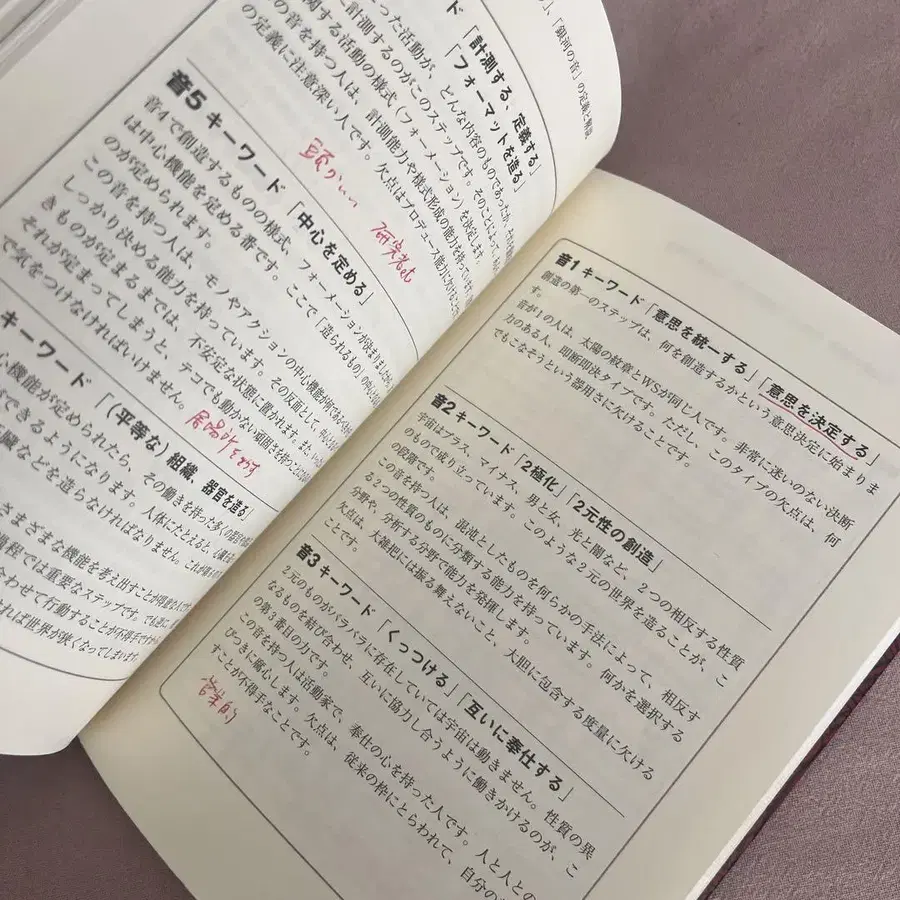 音1 キーワード「意思を統一する」「意思を決定する」
創造の第一のステップは、何を創造するかという意思決定に始まりま
す。
音が1の人は、太陽の紋章とWSが同じ人です。非常に迷いのない決断
力のある人、即断即決タイプです。ただし、このタイプの欠点は、何
でもこなそうという器用さに欠けることです。
音2 キーワード「2極化」「2元性の創造」
宇宙はプラス、マイナス、男と女、光と闇など、2つの相反する性質
のもので成り立っています。このような2元の世界を造ることが、こ
の段階です。
この音を持つ人は、混沌としたものを何らかの手法によって、相反す
る2つの性質のものに分類する能力を持っています。何かを選択する
分野や、分析する分野で能力を発揮します。
欠点は、大雑把には振る舞えないこと、大胆に包含する度量に欠ける
ことです。
音3 キーワード「くっつける」「互いに奉仕する」
2元のものがバラバラに存在していては宇宙は動きません。性質の異
なるものを結び合わせ、互いに協力し合うように働きかけるのが、こ
の第3番目の力です。
この音を持つ人は活動家で、奉仕の心を持った人です。人と人との
びつきに腐心します。欠点は、従来の枠にとらわれて、自分の
すことが不得手なことです。
営業的
」、「銀河の音」の定義と解説
ード「計測する、定義する」
「フォーマットを造る」
った活動が、どんな内容のものであったか、
計測するのがこのステップです。そのことによって、
関する活動の様式(フォーメーション)を決定します。
の音を持つ人は、計測能力や様式形成の能力を持っています。
の定義に注意深い人です。欠点はプロデュース能力に欠けることで
頭がいい 研究とか
音5 キーワード「中心を定める」
音4で創造するものの様式、フォーメーションが決まりましたから、
は中心機能を定める番です。ここで「造られるもの」の
のが定められます。
この音を持つ人は、モノやアクションの中心機能が何であるべ
しっかり決める能力を持っています。その反面として、
きものが定まるまでは、不安定な状態に置かれます。また、
それが定まってしまうと、テコでも動かない頑固さを持つことに
で気をつけなければいけません。
居場所さがす
キーワード「(平等な)組織、器官を造る」
心機能が定められたら、その働きを持った多くの
ができるようになります。人体にたとえると、
臓などを造らなければなりません。これが
まざまな機能を考え出すことが得意な
過程では重要なステップです。でも逆に、
合わせて行動することが不得手ですから
れば世界が狭くなってしまいます。